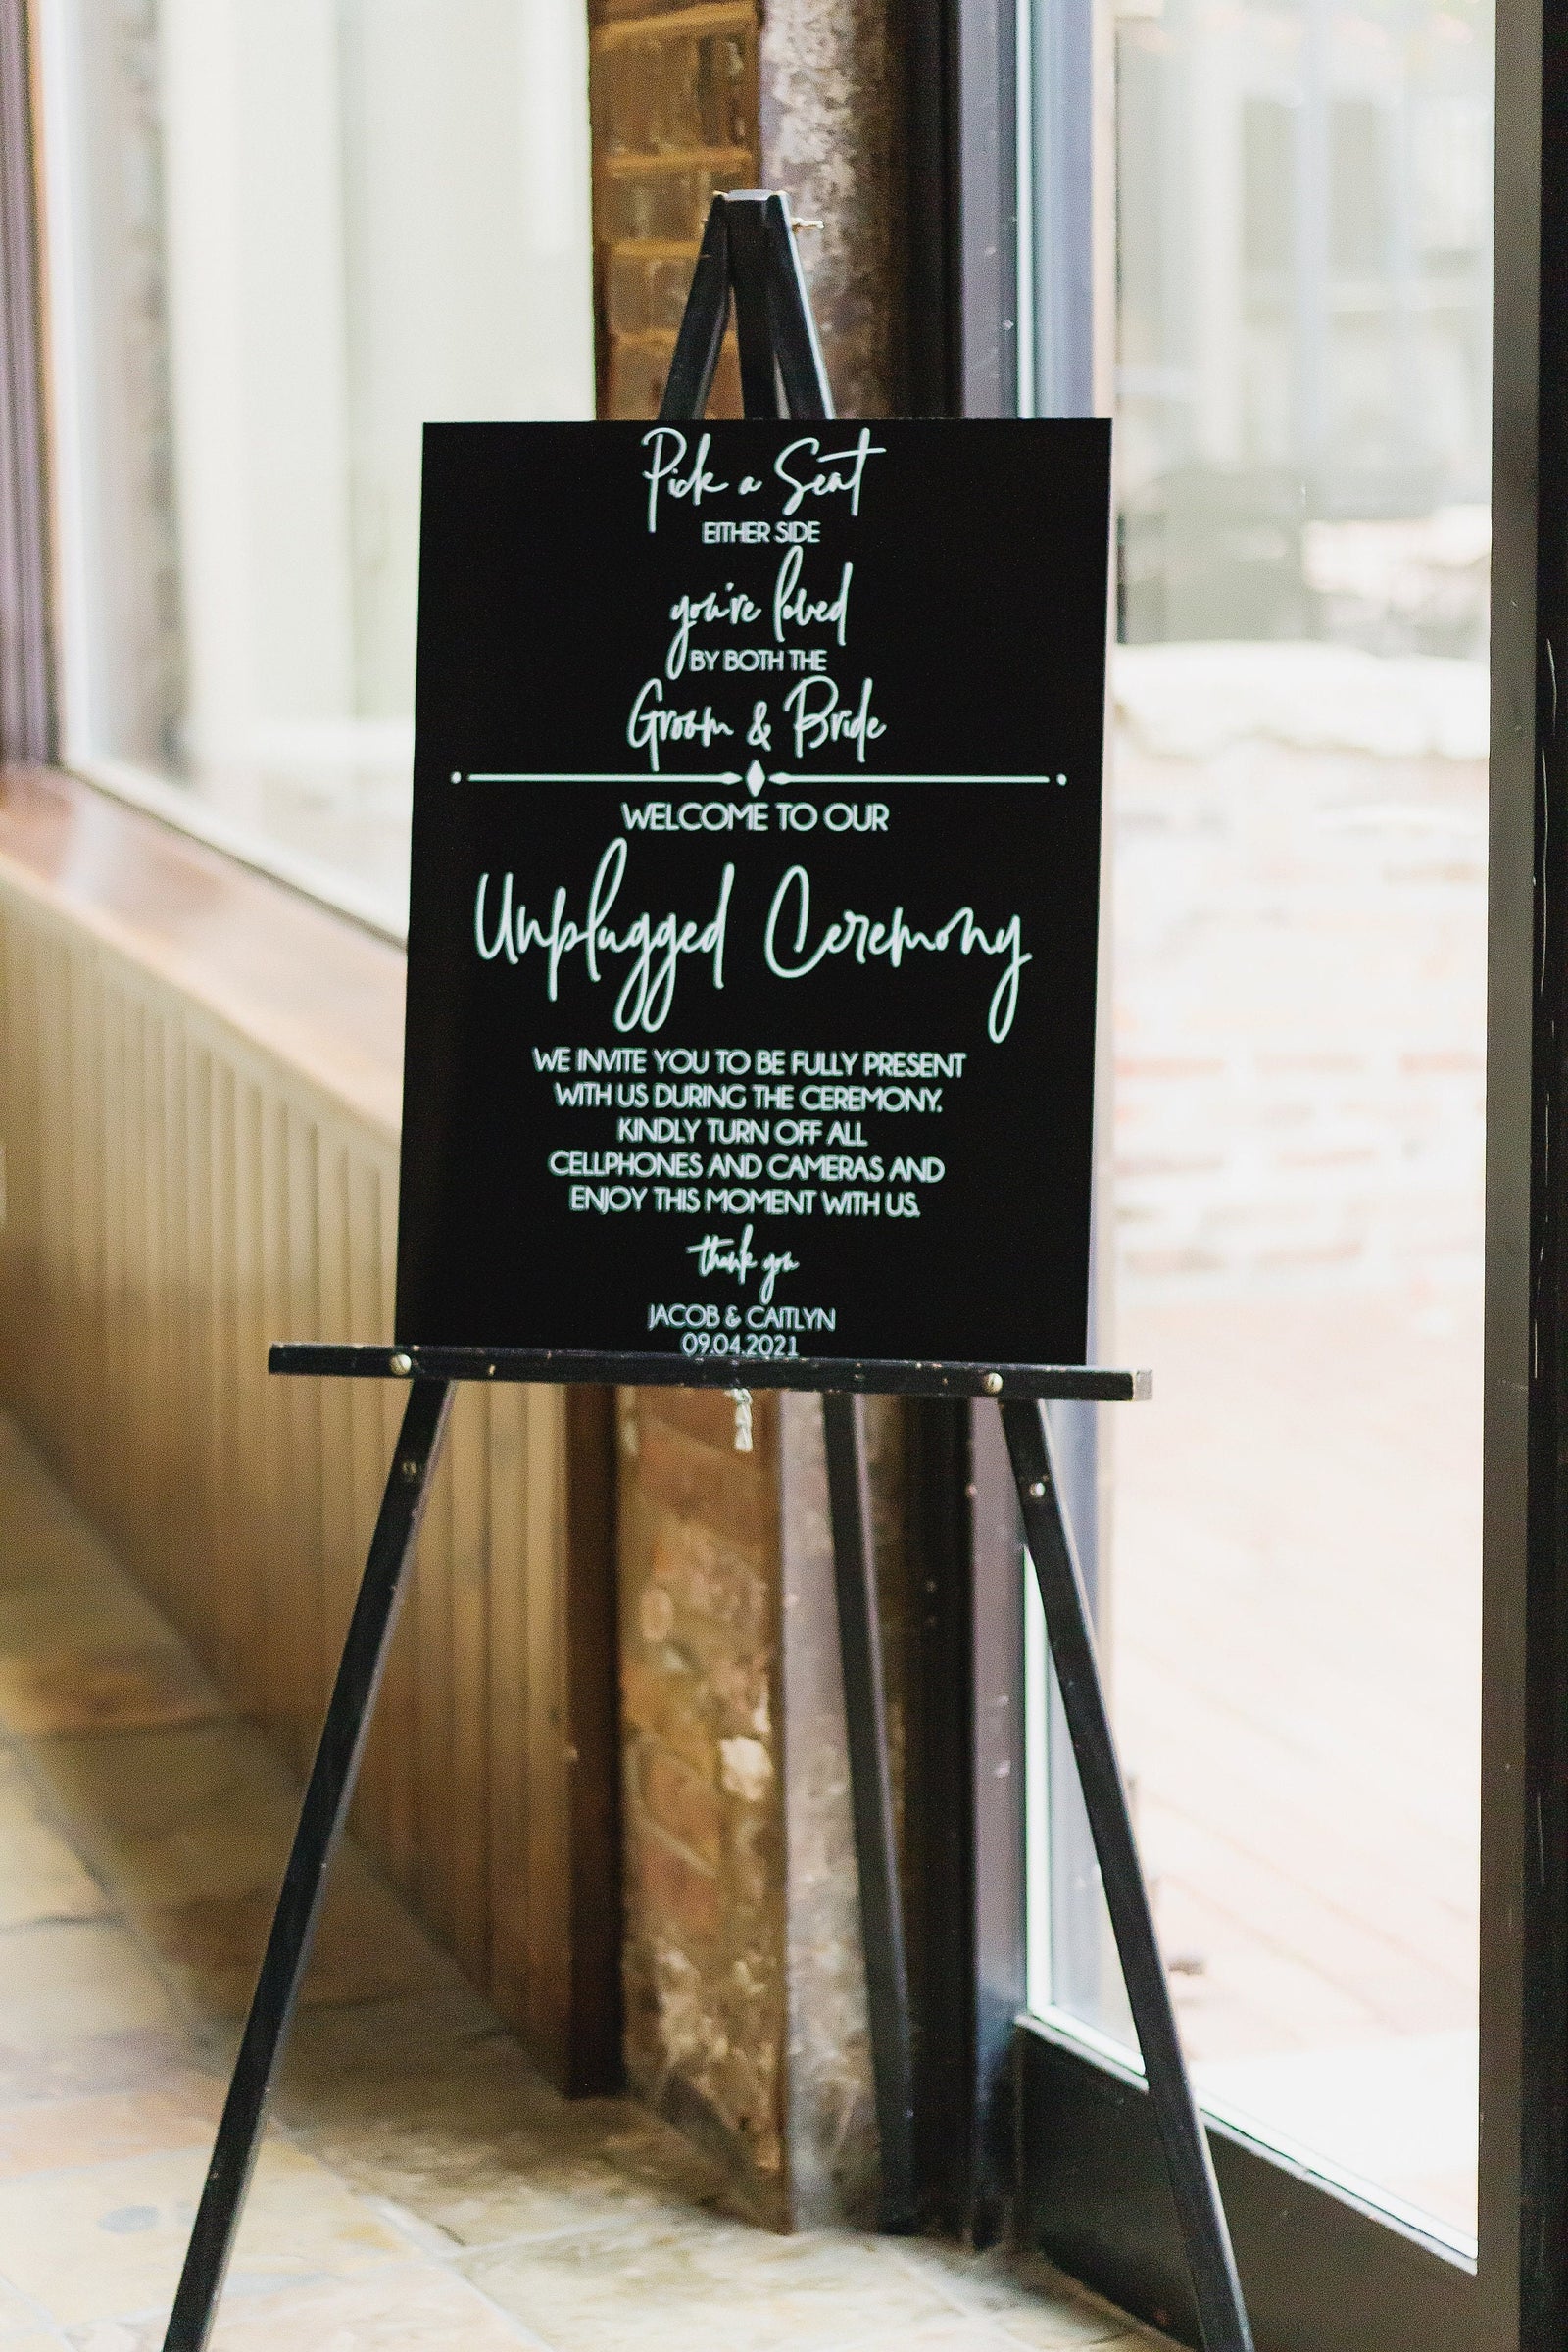 Pick a Seat
EITHER SIDE
you're loved
BY BOTH THE
Groom & Bride
WELCOME TO OUR
Unplugged Ceremony
WE INVITE YOU TO BE FULLY PRESENT
WITH US DURING THE CEREMONY.
KINDLY TURN OFF ALL
CELLPHONES AND CAMERAS AND
ENJOY THIS MOMENT WITH US.
thank you
JACOB & CAITLYN
09.04.2021